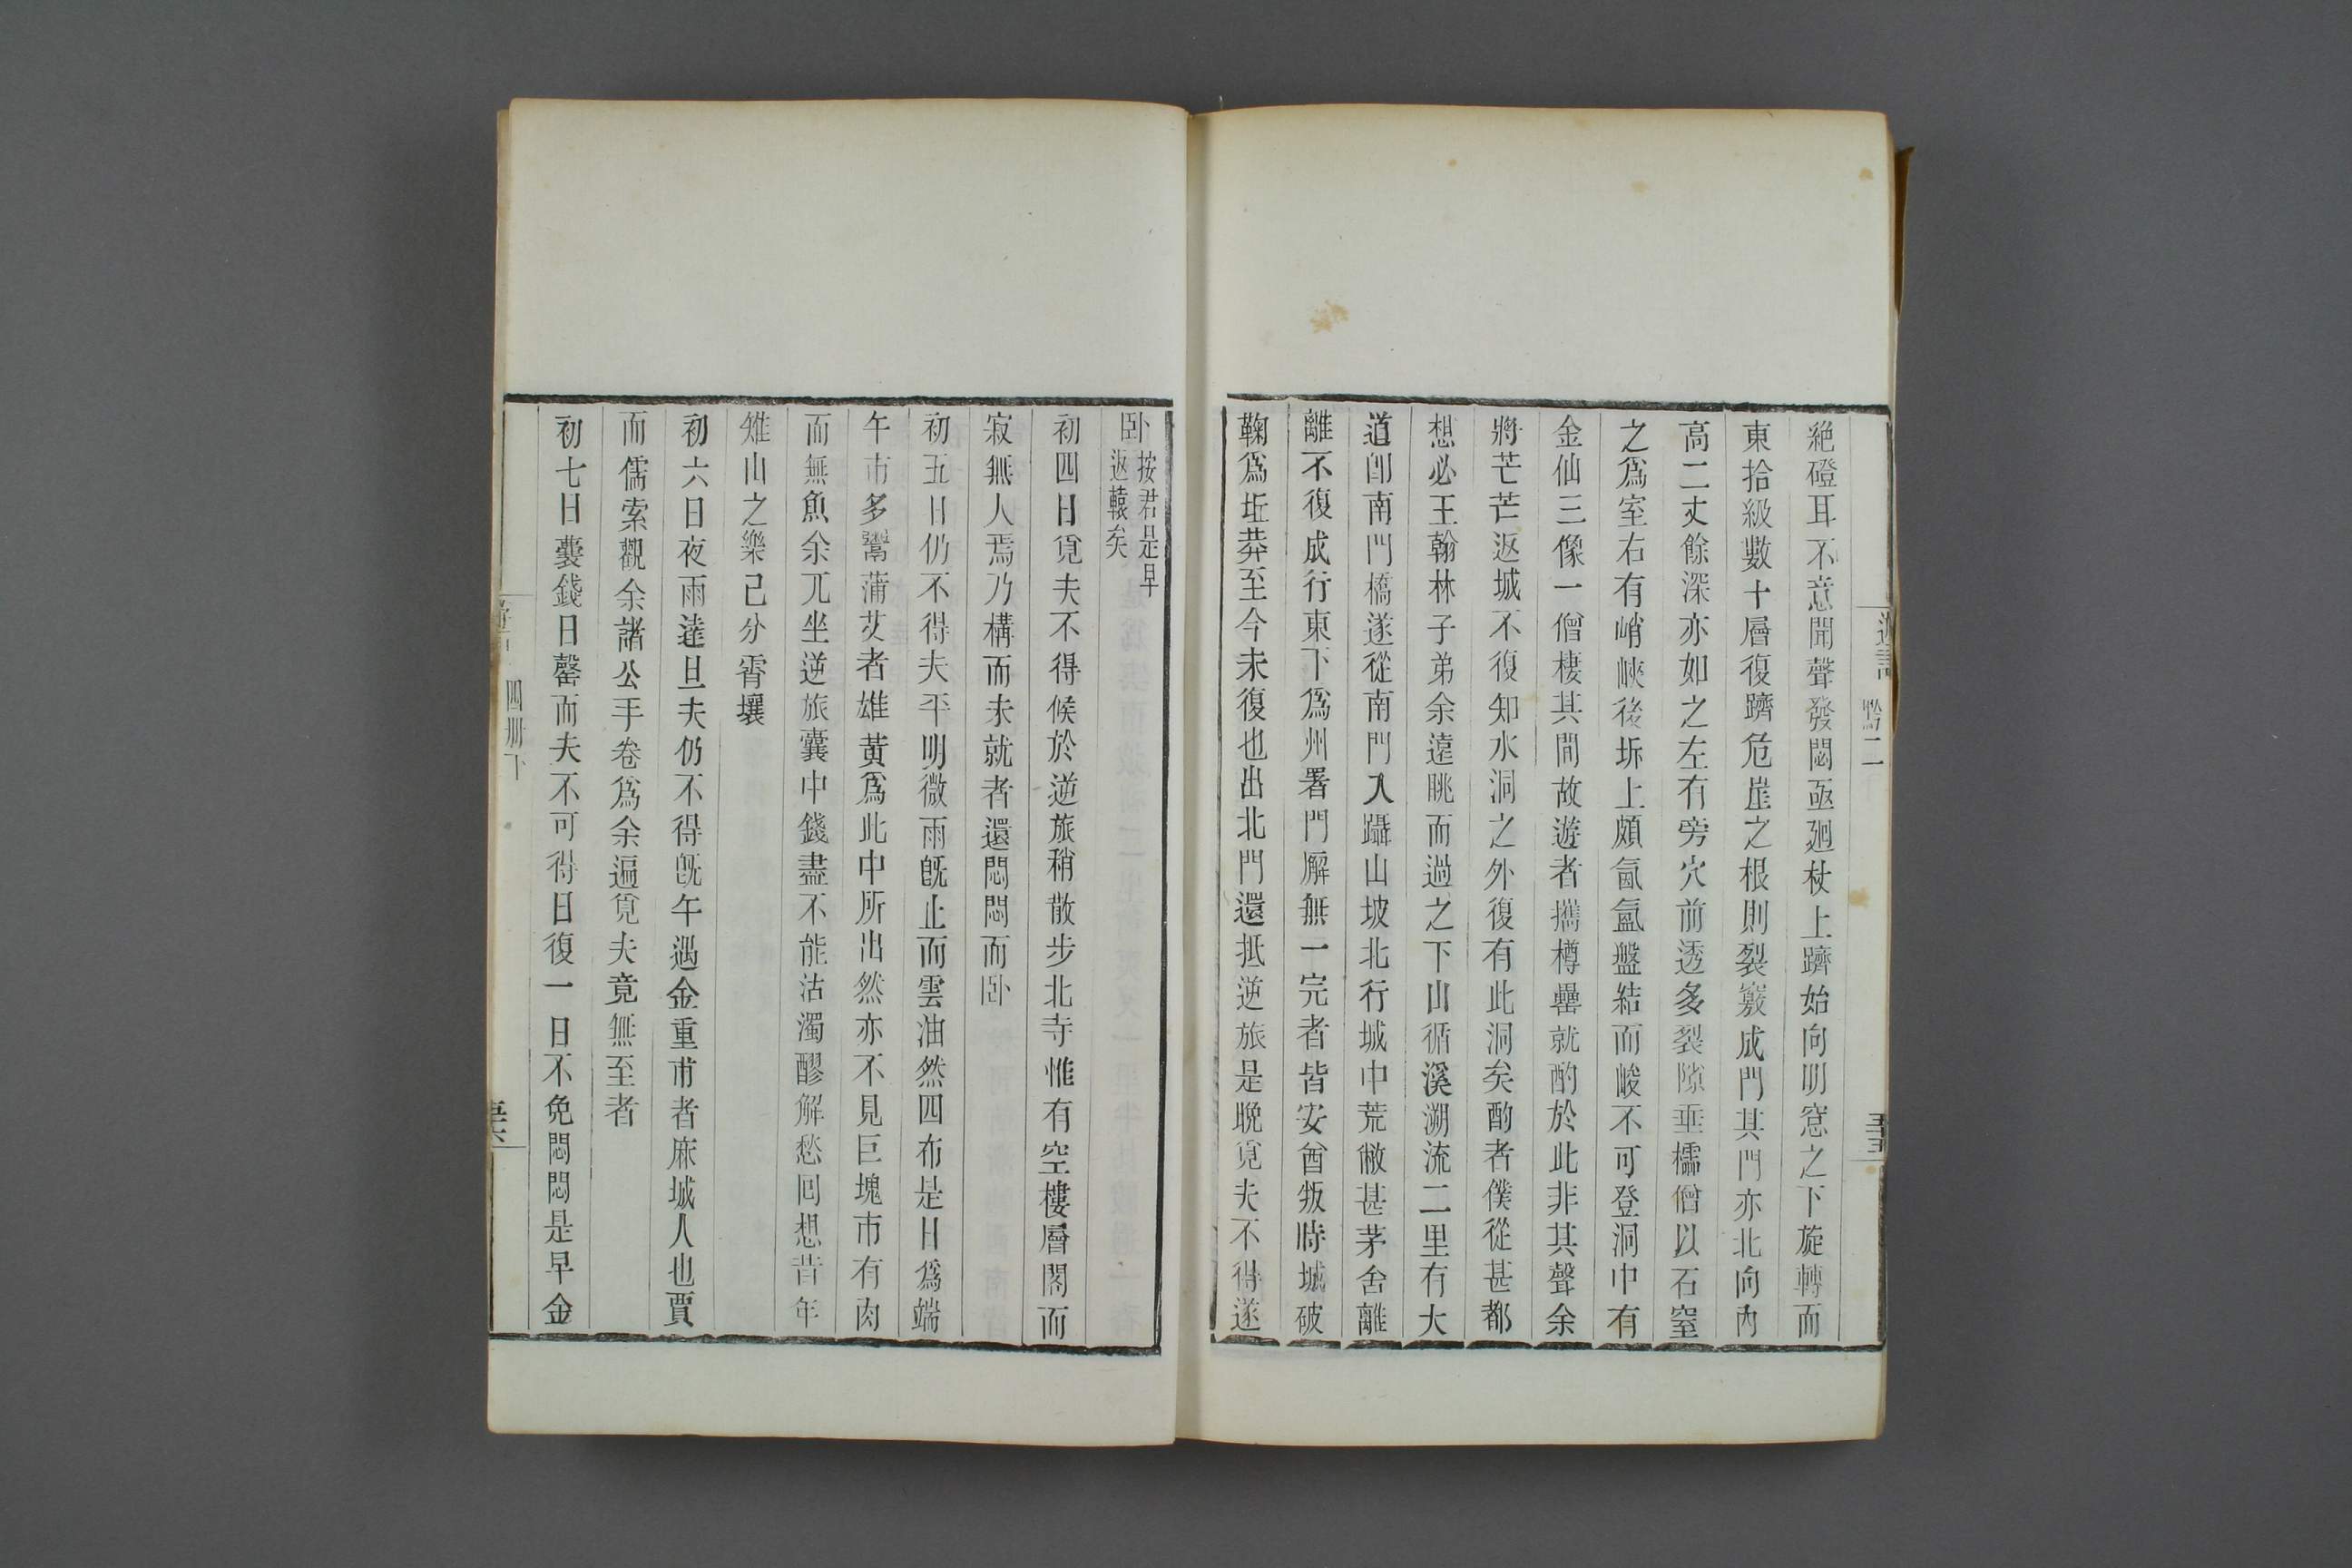 遊記 黔二 五十五
絶磴耳不意聞聲發閟亟迴杖上躋始向明窓之下旋轉而
東拾級數十層復躋危崖之根則裂竅成門其門亦北向内
高二丈餘深亦如之左有旁穴前透多裂隙垂櫺僧以石窒
之爲室右有峭峽後坼上頗氤氳盤結而峻不可登洞中有
金仙三像一僧棲其間故遊者攜樽罍就酌於此非其聲余
將芒芒返城不復知水洞之外復有此洞矣酌者僕從甚都
想必王翰林子弟余遠眺而過之下山循溪溯流二里有大
道卽南門橋遂從南門入躡山坡北行城中荒敝甚茅舍離
離不復成行東下爲州署門廨無一完者皆安酋叛時城破
鞠爲坵莽至今未復也出北門還抵逆旅是晚覓夫不得遂
卧按君是早返轅矣
初四日覓夫不得候於逆旅稍散步北寺惟有空樓層閣而
寂無人焉乃構而未就者還悶悶而卧
初五日仍不得夫平明微雨旣止而雲油然四布是日爲端
午市多鬻蒲艾者雄黃爲此中所出然亦不見巨塊市有肉
而無魚余兀坐逆旅囊中錢盡不能沽濁醪解愁回想昔年
雉山之樂已分霄壤
初六日夜雨達旦夫仍不得旣午遇金重甫者麻城人也賈
而儒索觀余諸公手卷爲余遍覓夫竟無至者
初七日囊錢日罄而夫不可得日復一日不免悶悶是早金
四冊下